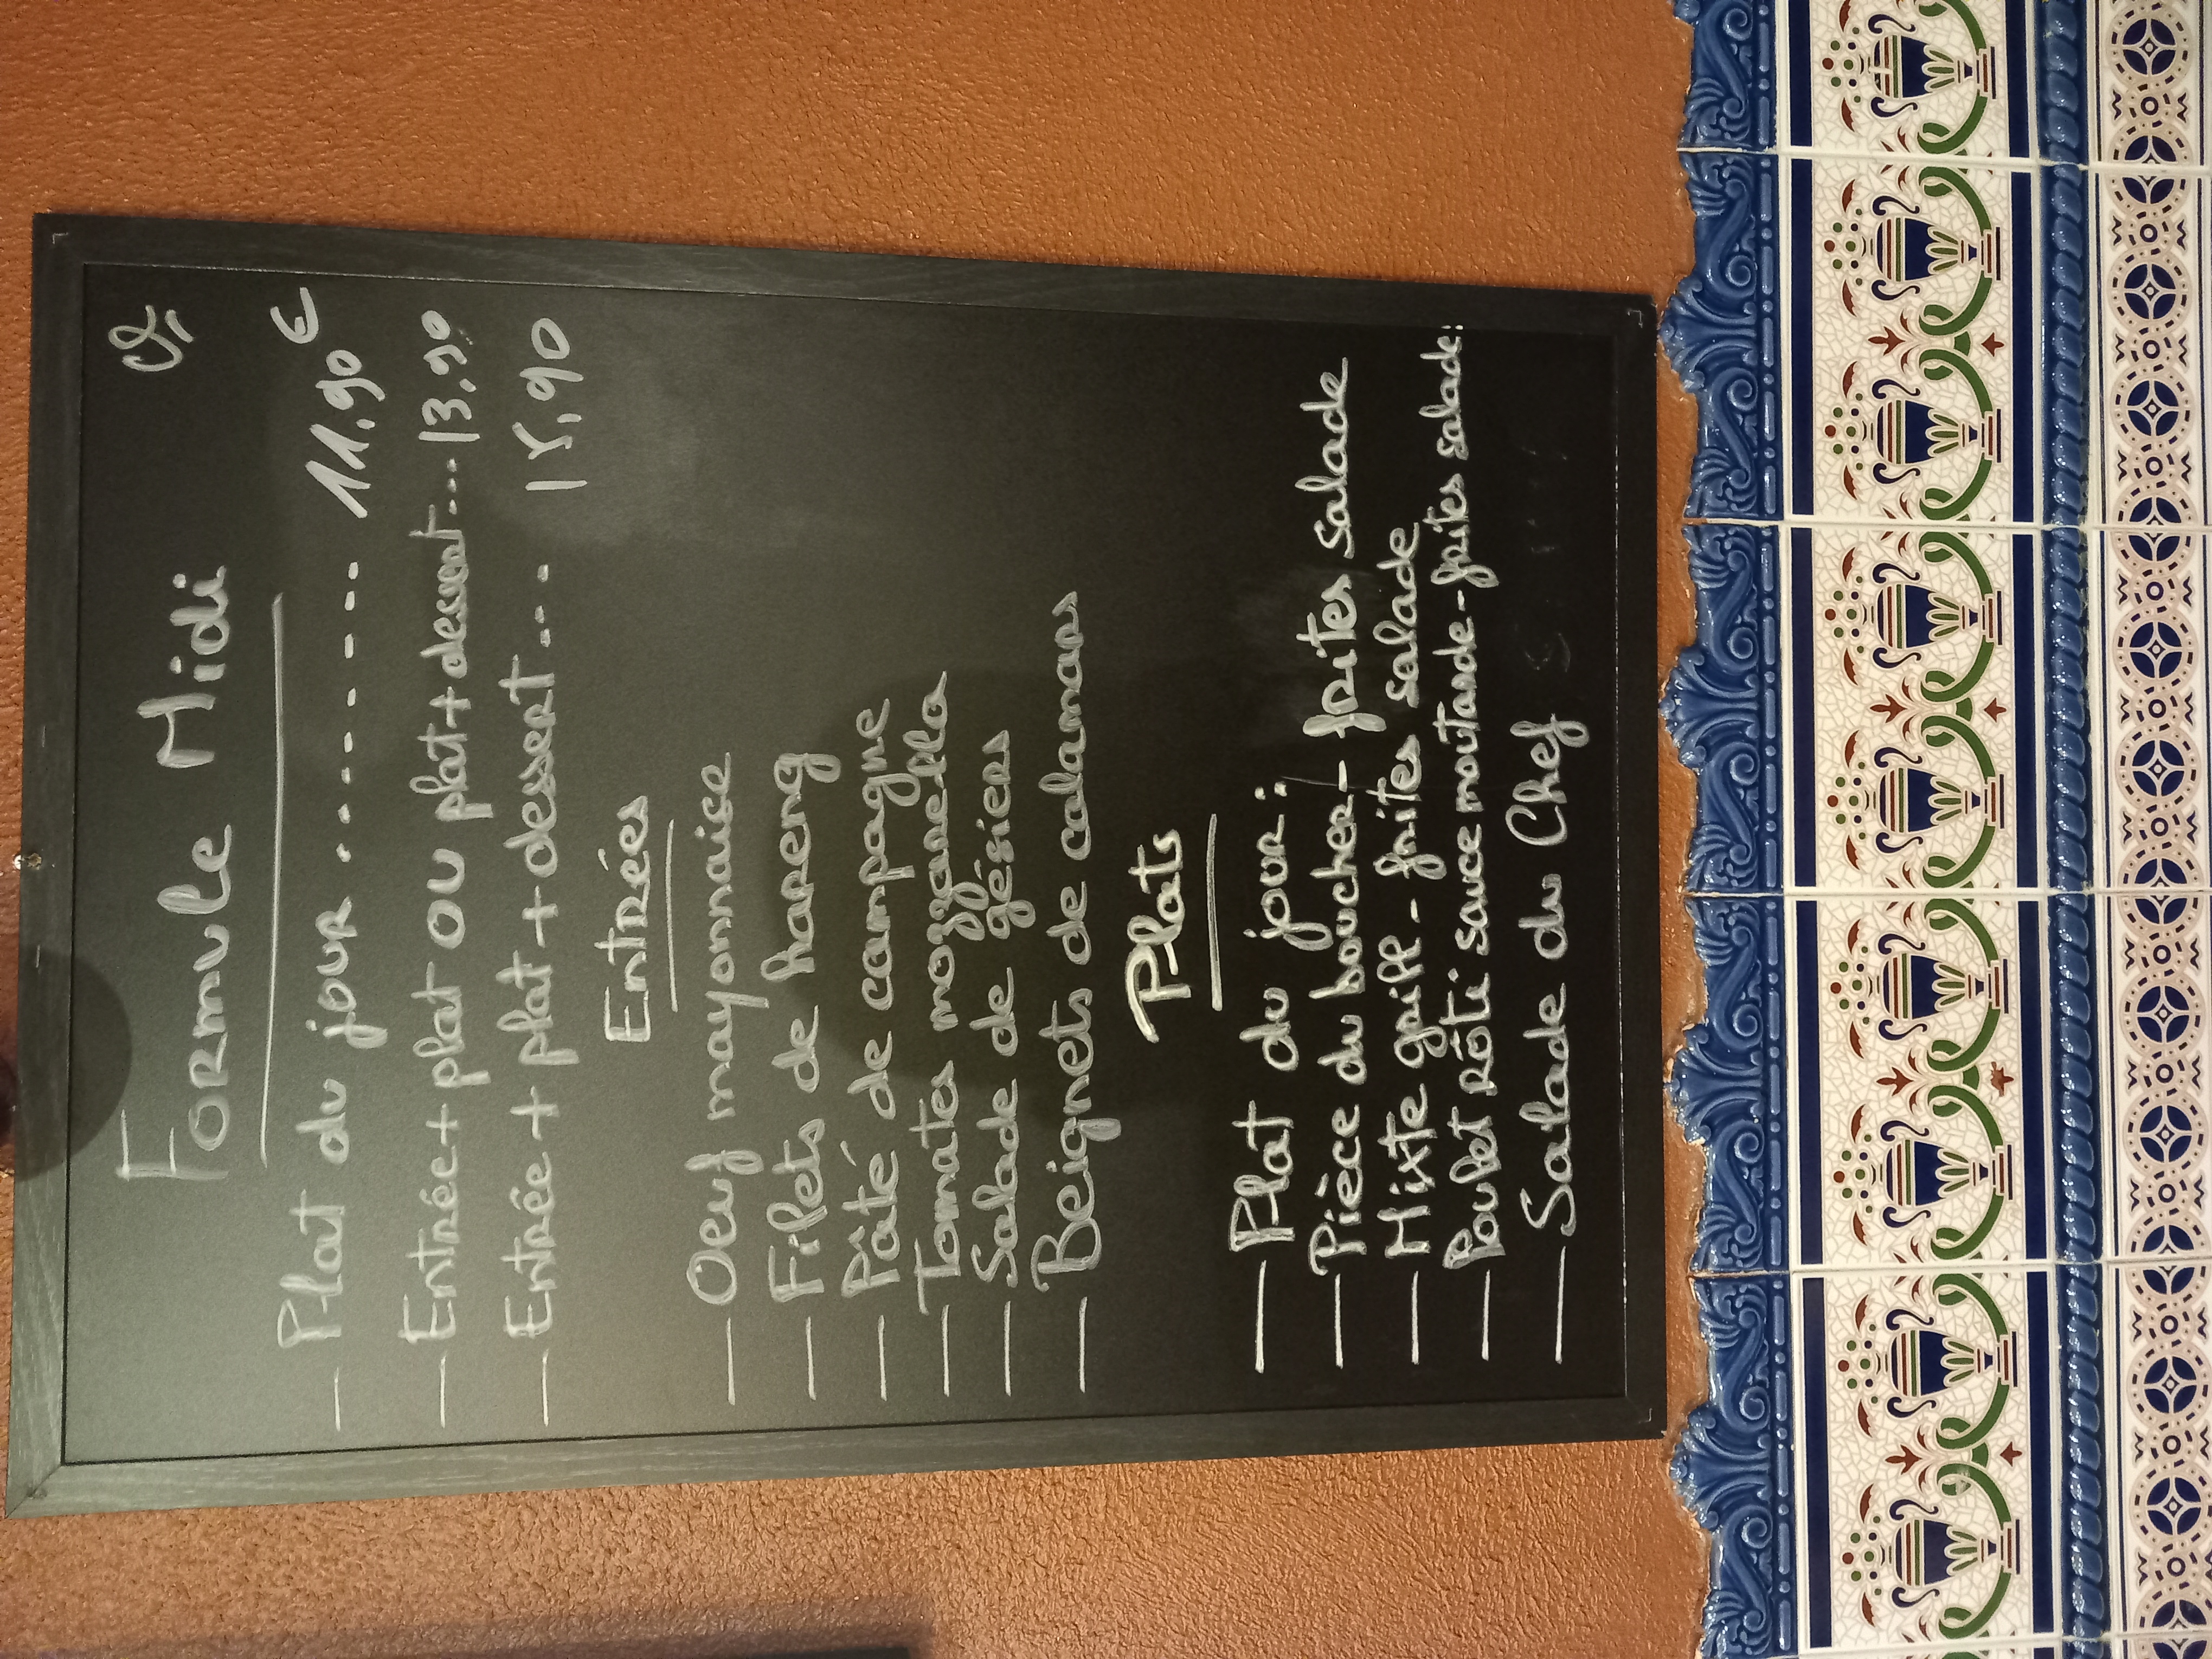 Formule Midi
— Plat du jour ........... 11,90 €
— Entrée + plat ou plat + dessert ... 13,90
— Entrée + plat + dessert ... 15,90
Entrées
— Oeuf mayonnaise
— Filets de hareng
— Pâté de campagne
— Tomates mozzarella
— Salade de gésiers
— Beignets de calamars
Plats
— Plat du jour :
— Pièce du boucher - frites salade
— Mixte grill - frites salade
— Poulet rôti sauce moutarde - frites salade.
— Salade du Chef